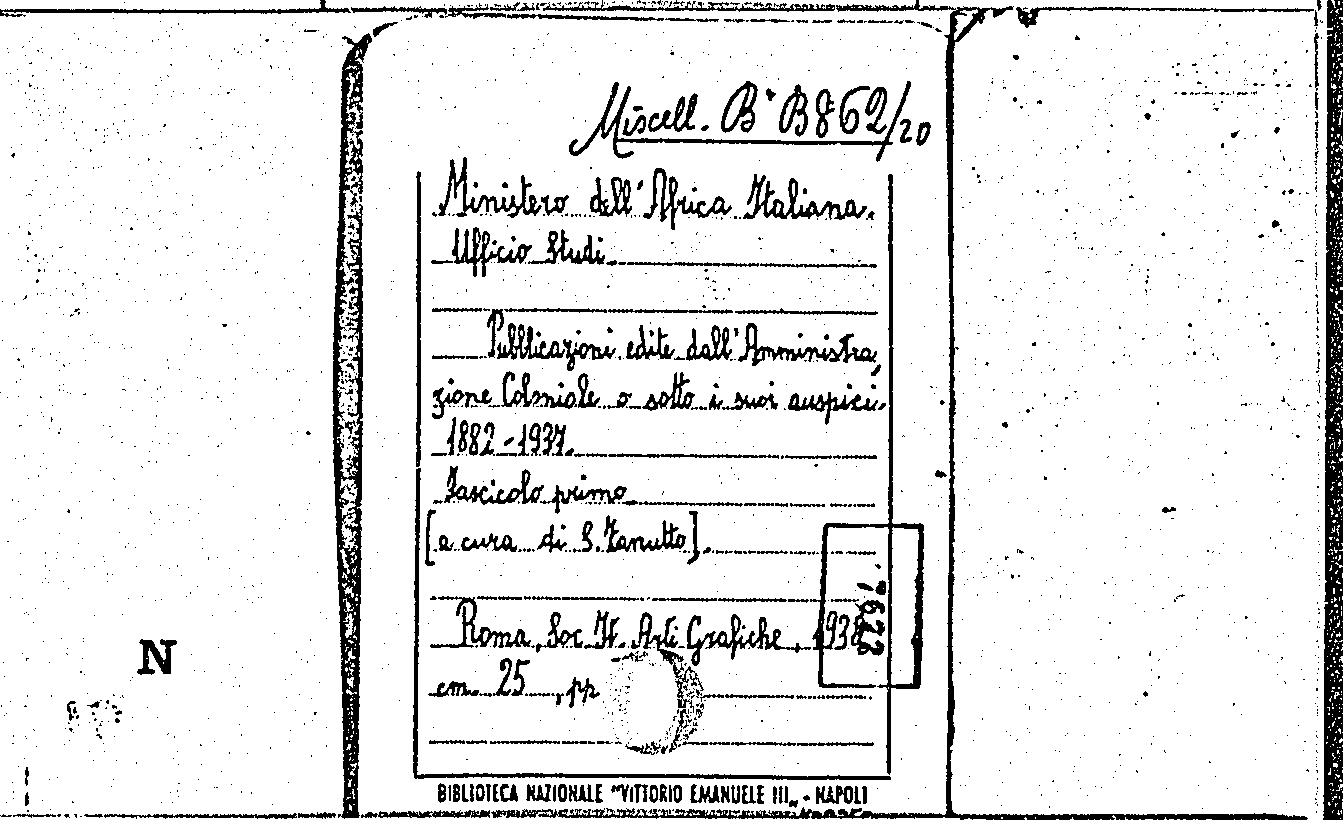 Miscell. B* B862/20
Ministero dell'Africa Italiana.
Ufficio Studi
Pubblicazioni edite dall'Amministra,
zione Coloniale o sotto i suoi auspici.
1882-1937.
Fascicolo primo
[a cura di S. Zanutto].
Roma, Soc. It. Arti Grafiche, 1938
cm. 25, pp
7622
N
BIBLIOTECA NAZIONALE "VITTORIO EMANUELE III„ - NAPOLI